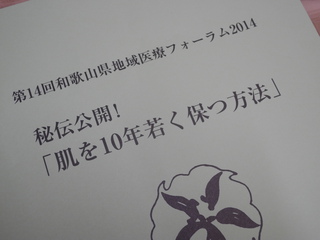 第14回和歌山県地域医療フォーラム2014
秘伝公開!
「肌を10年若く保つ方法」